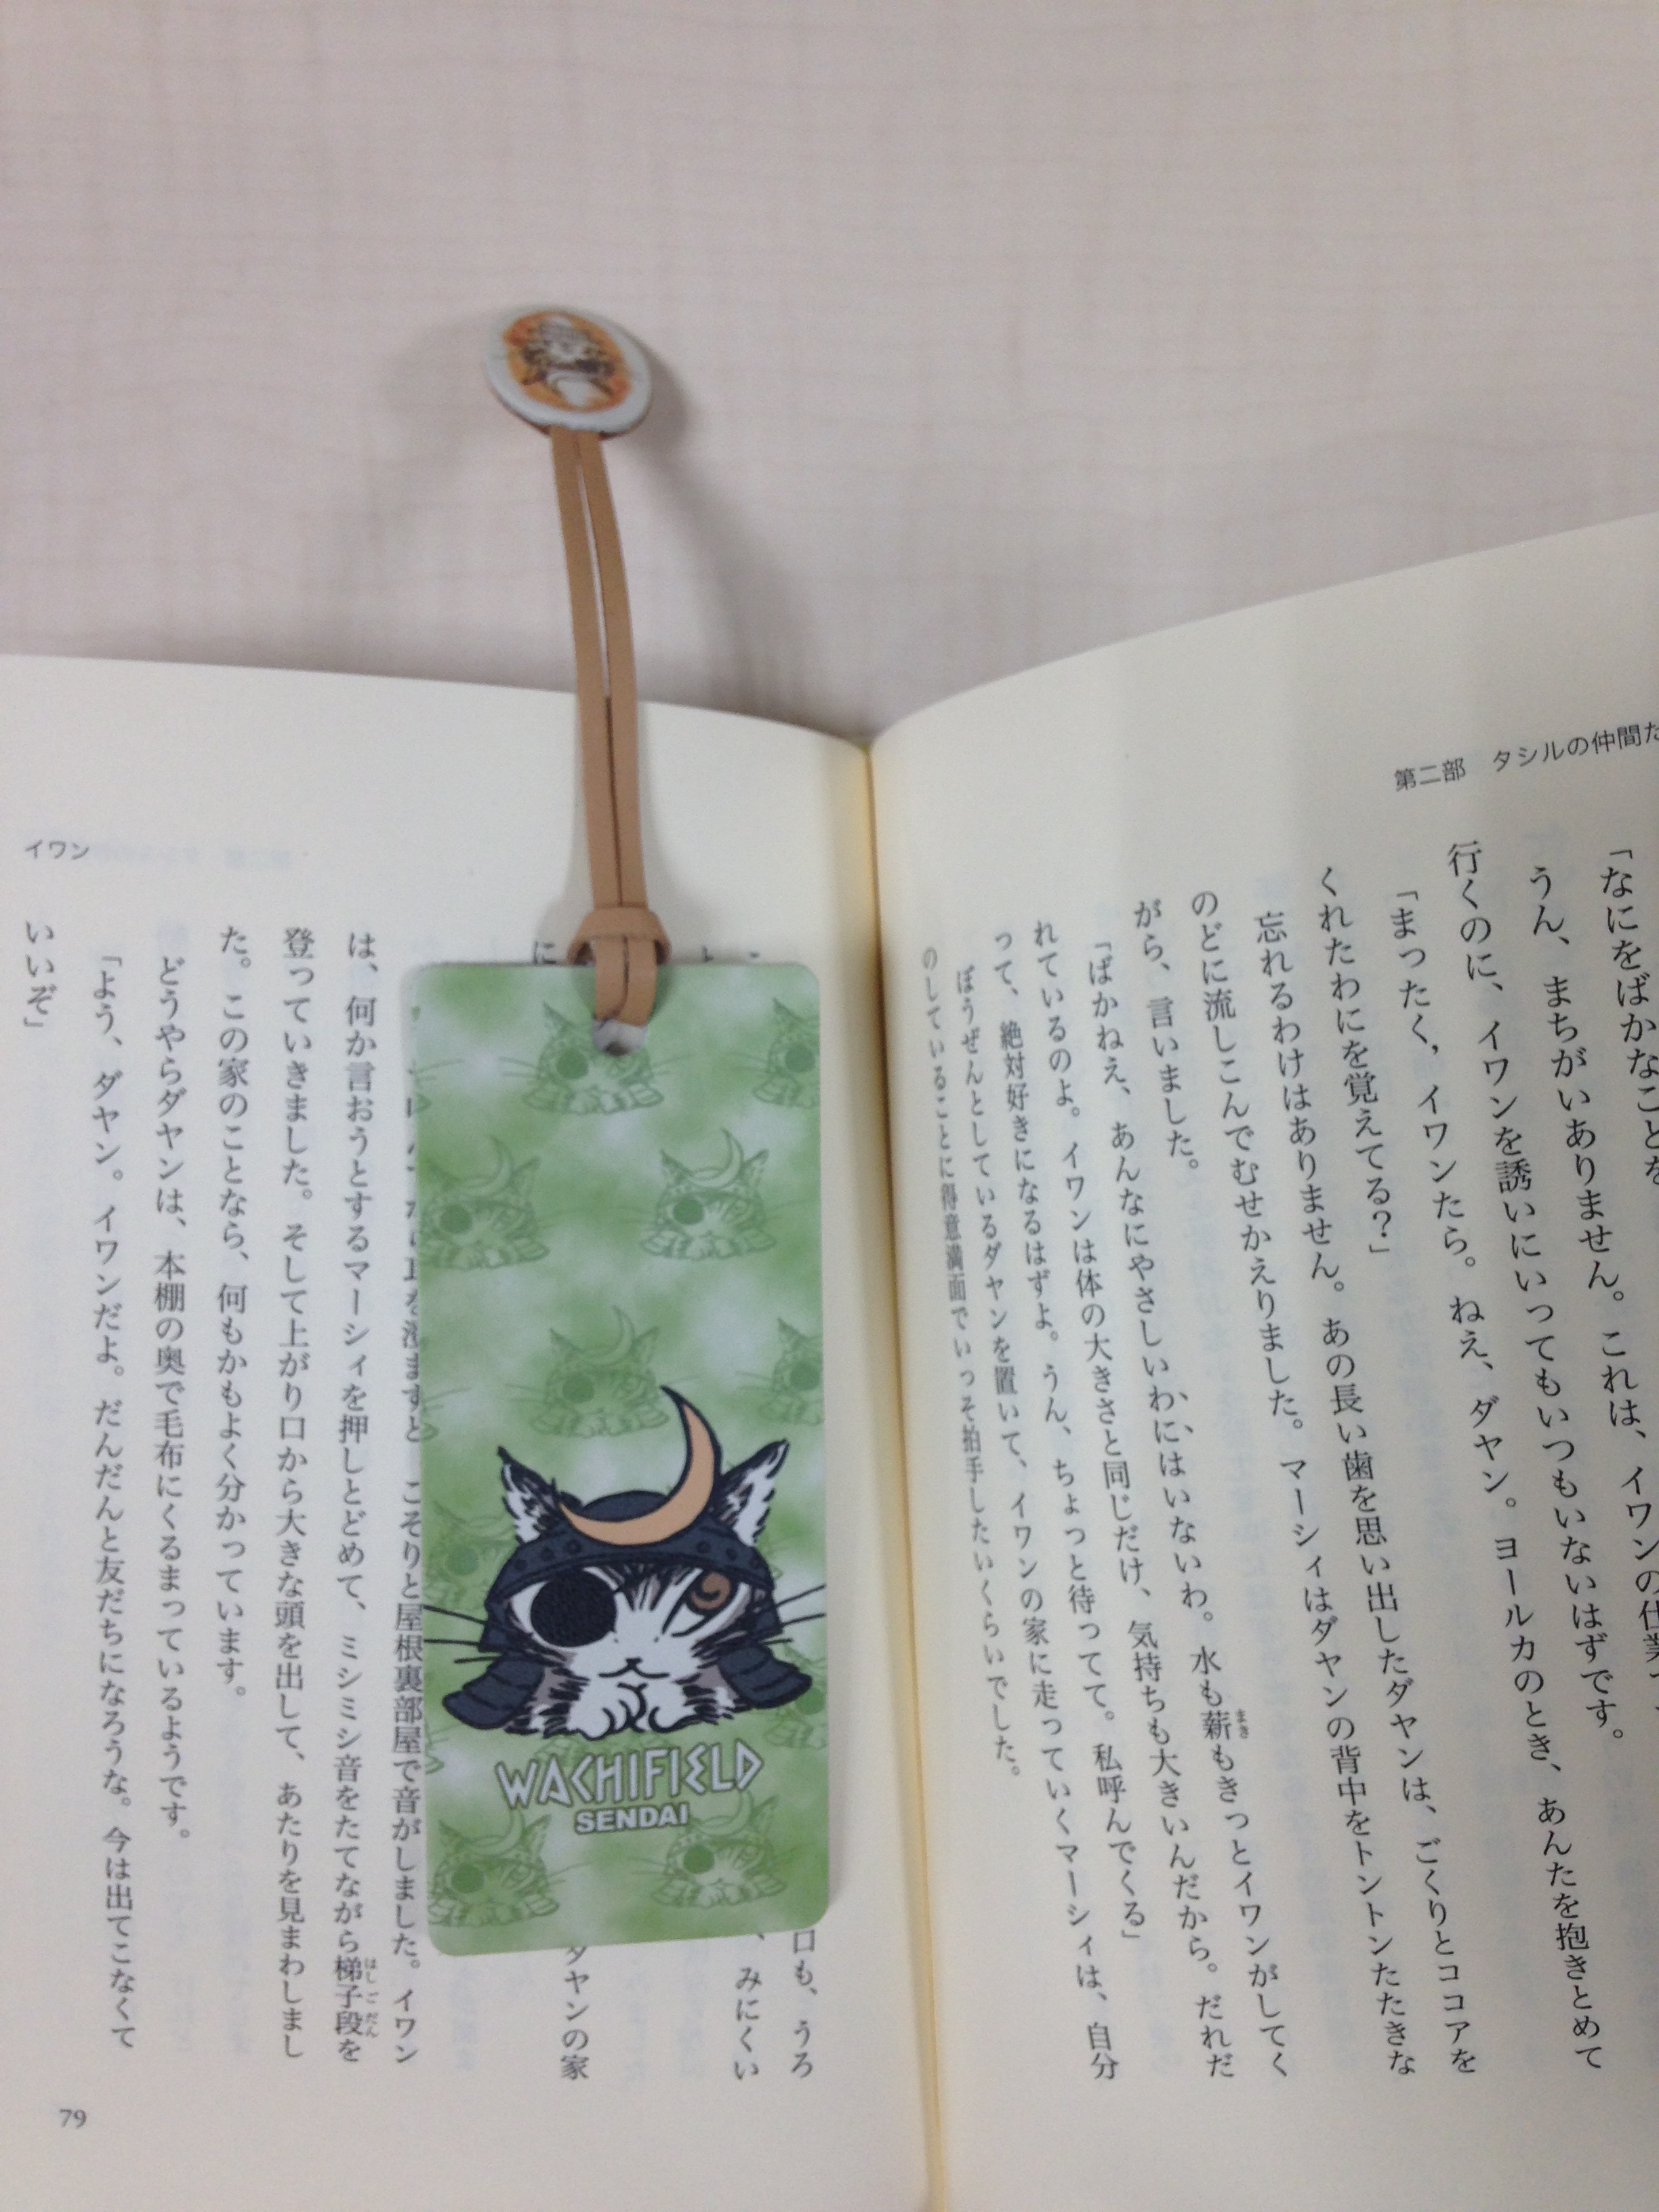 第二部 タシルの仲間た
「なにをばかなことを
うん、まちがいありません。これは、イワンの仕業
行くのに、イワンを誘いにいってもいつもいないはずです。
「まったく、イワンたら。ねえ、ダヤン。ヨールカのとき、あんたを抱きとめて
くれたわにを覚えてる?」
忘れるわけはありません。あの長い歯を思い出したダヤンは、ごくりとココアを
のどに流しこんでむせかえりました。マーシィはダヤンの背中をトントンたたきな
がら、言いました。
「ばかねえ、あんなにやさしいわにはいないわ。水も薪もきっとイワンがしてく
れているのよ。イワンは体の大きさと同じだけ、気持ちも大きいんだから。だれだ
って、絶対好きになるはずよ。うん、ちょっと待ってて。私呼んでくる」
ぼうぜんとしているダヤンを置いて、イワンの家に走っていくマーシィは、自分
のしていることに得意満面でいっそ拍手したいくらいでした。
まき
口も、うろ
、みにくい
に
ダヤンの家
こそりと屋根裏部屋で音がしました。イワン
は、何か言おうとするマーシィを押しとどめて、ミシミシ音をたてながら梯子段を
はしごだん
登っていきました。そして上がり口から大きな頭を出して、あたりを見まわしまし
た。この家のことなら、何もかもよく分かっています。
どうやらダヤンは、本棚の奥で毛布にくるまっているようです。
「よう、ダヤン。イワンだよ。だんだんと友だちになろうな。今は出てこなくて
いいぞ」
イワン
79
WACHIFIELD
SENDAI